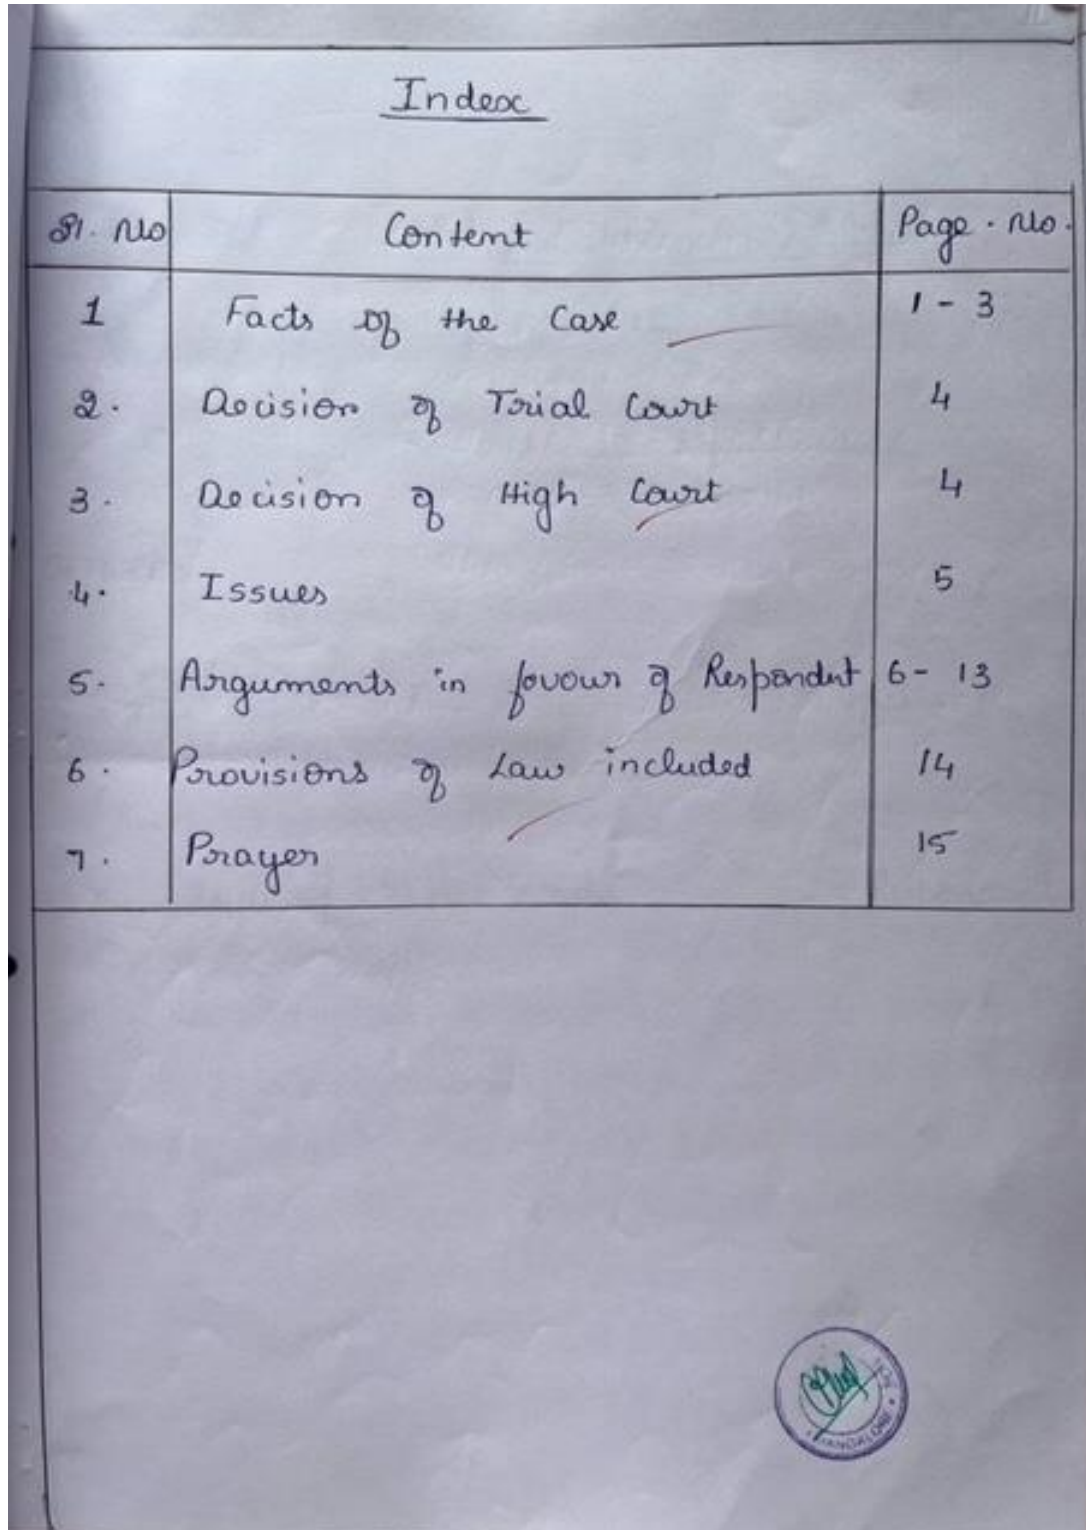 Index
Sl. No Content Page. No.
1 Facts of the Case 1 - 3
2. Decision of Trial Court 4
3. Decision of High Court 4
4. Issues 5
5. Arguments in favour of Respondent 6 - 13
6. Provisions of Law included 14
7. Prayer 15
MANGALORE